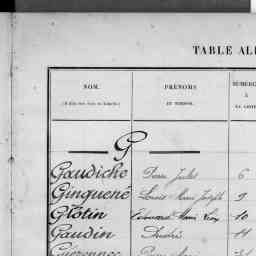 TABLE AL
NOM. PRÉNOMS NUMÉROS
ET SURNOM. A
LA LISTE
G
Gaudiche Pierre Jules 6
Ginguené Louis Marie Joseph 9
Glotin Edouard Marie Léon 10
Gaudin André 11